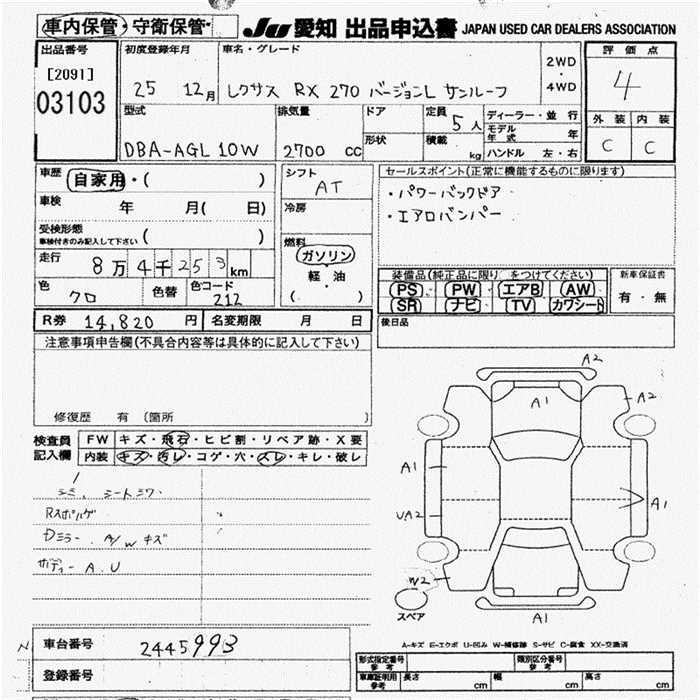 車内保管・守衛保管・ JU 愛知 出品申込書 JAPAN USED CAR DEALERS ASSOCIATION
出品番号 初度登録年月 車名・グレード 評価点
[2091] 25 12月 レクサス RX 270 バージョンL サンルーフ 2WD・4WD 4
03103
型式 排気量 ドア 定員 5人 ディーラー・並行 外装 内装
形状 積載 kg モデル年式 年
DBA-AGL10W 2700 CC ハンドル 左・右 C C
車歴 自家用・( ) シフト AT セールスポイント(正常に機能するものに限ります)
車検 年 月( 日) 冷房 ・パワーバックドア
・エアロバンパー
受検形態 ( )
車検付きのみ記入して下さい
燃料 ガソリン
軽・油
( )
走行 8万4千253km
装備品(純正品に限り をつけてください) 新車保証書
色 クロ 色替 色コード 212
PS PW エアB AW 有・無
SR ナビ TV カワシート
R券 14,820円 名変期限 月 日 後日品
注意事項申告欄(不具合内容等は具体的に記入して下さい)
修復歴 有 (箇所
検査員記入欄 FW キズ・飛石・ヒビ割・リペア跡・X要
内装 キズ・汚レ・コゲ・穴・スレ・キレ・破レ
シミ、シートシワ
Dミラー . A/W キズ
ボディー A.U
A2
A1
A2
A1
A1
UA2
W2
スペア
A1
A-キズ E-エクボ U-凹み W-補修跡 S-サビ C-腐食 XX-交換済
車台番号 2445993
登録番号
形式指定番号 参考 類別区分番号 参考
車庫証明用 参考 長さ cm 幅 cm 高さ cm